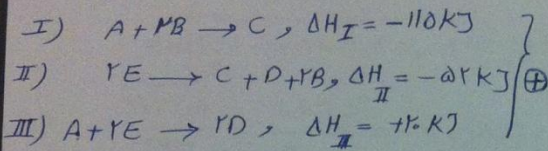 I) A + ۳B → C , ΔH_I = -۱۱۵ KJ
II) ۲E → C + D + ۲B , ΔH_II = -۵۲ KJ
III) A + ۲E → ۲D , ΔH_III = +۲۰ KJ
⊕